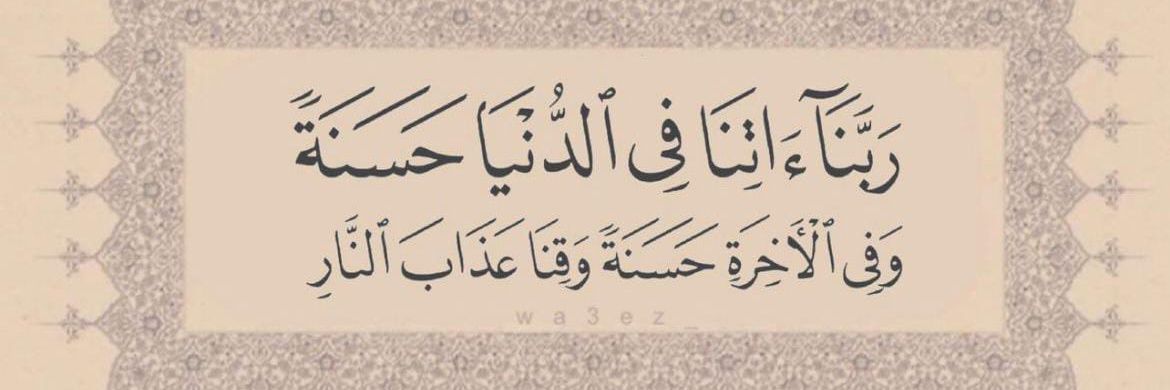 رَبَّنَآ ءَاتِنَا فِى ٱلدُّنْيَا حَسَنَةً
وَفِى ٱلْأَخِرَةِ حَسَنَةً وَقِنَا عَذَابَ ٱلنَّارِ
wa3ez_